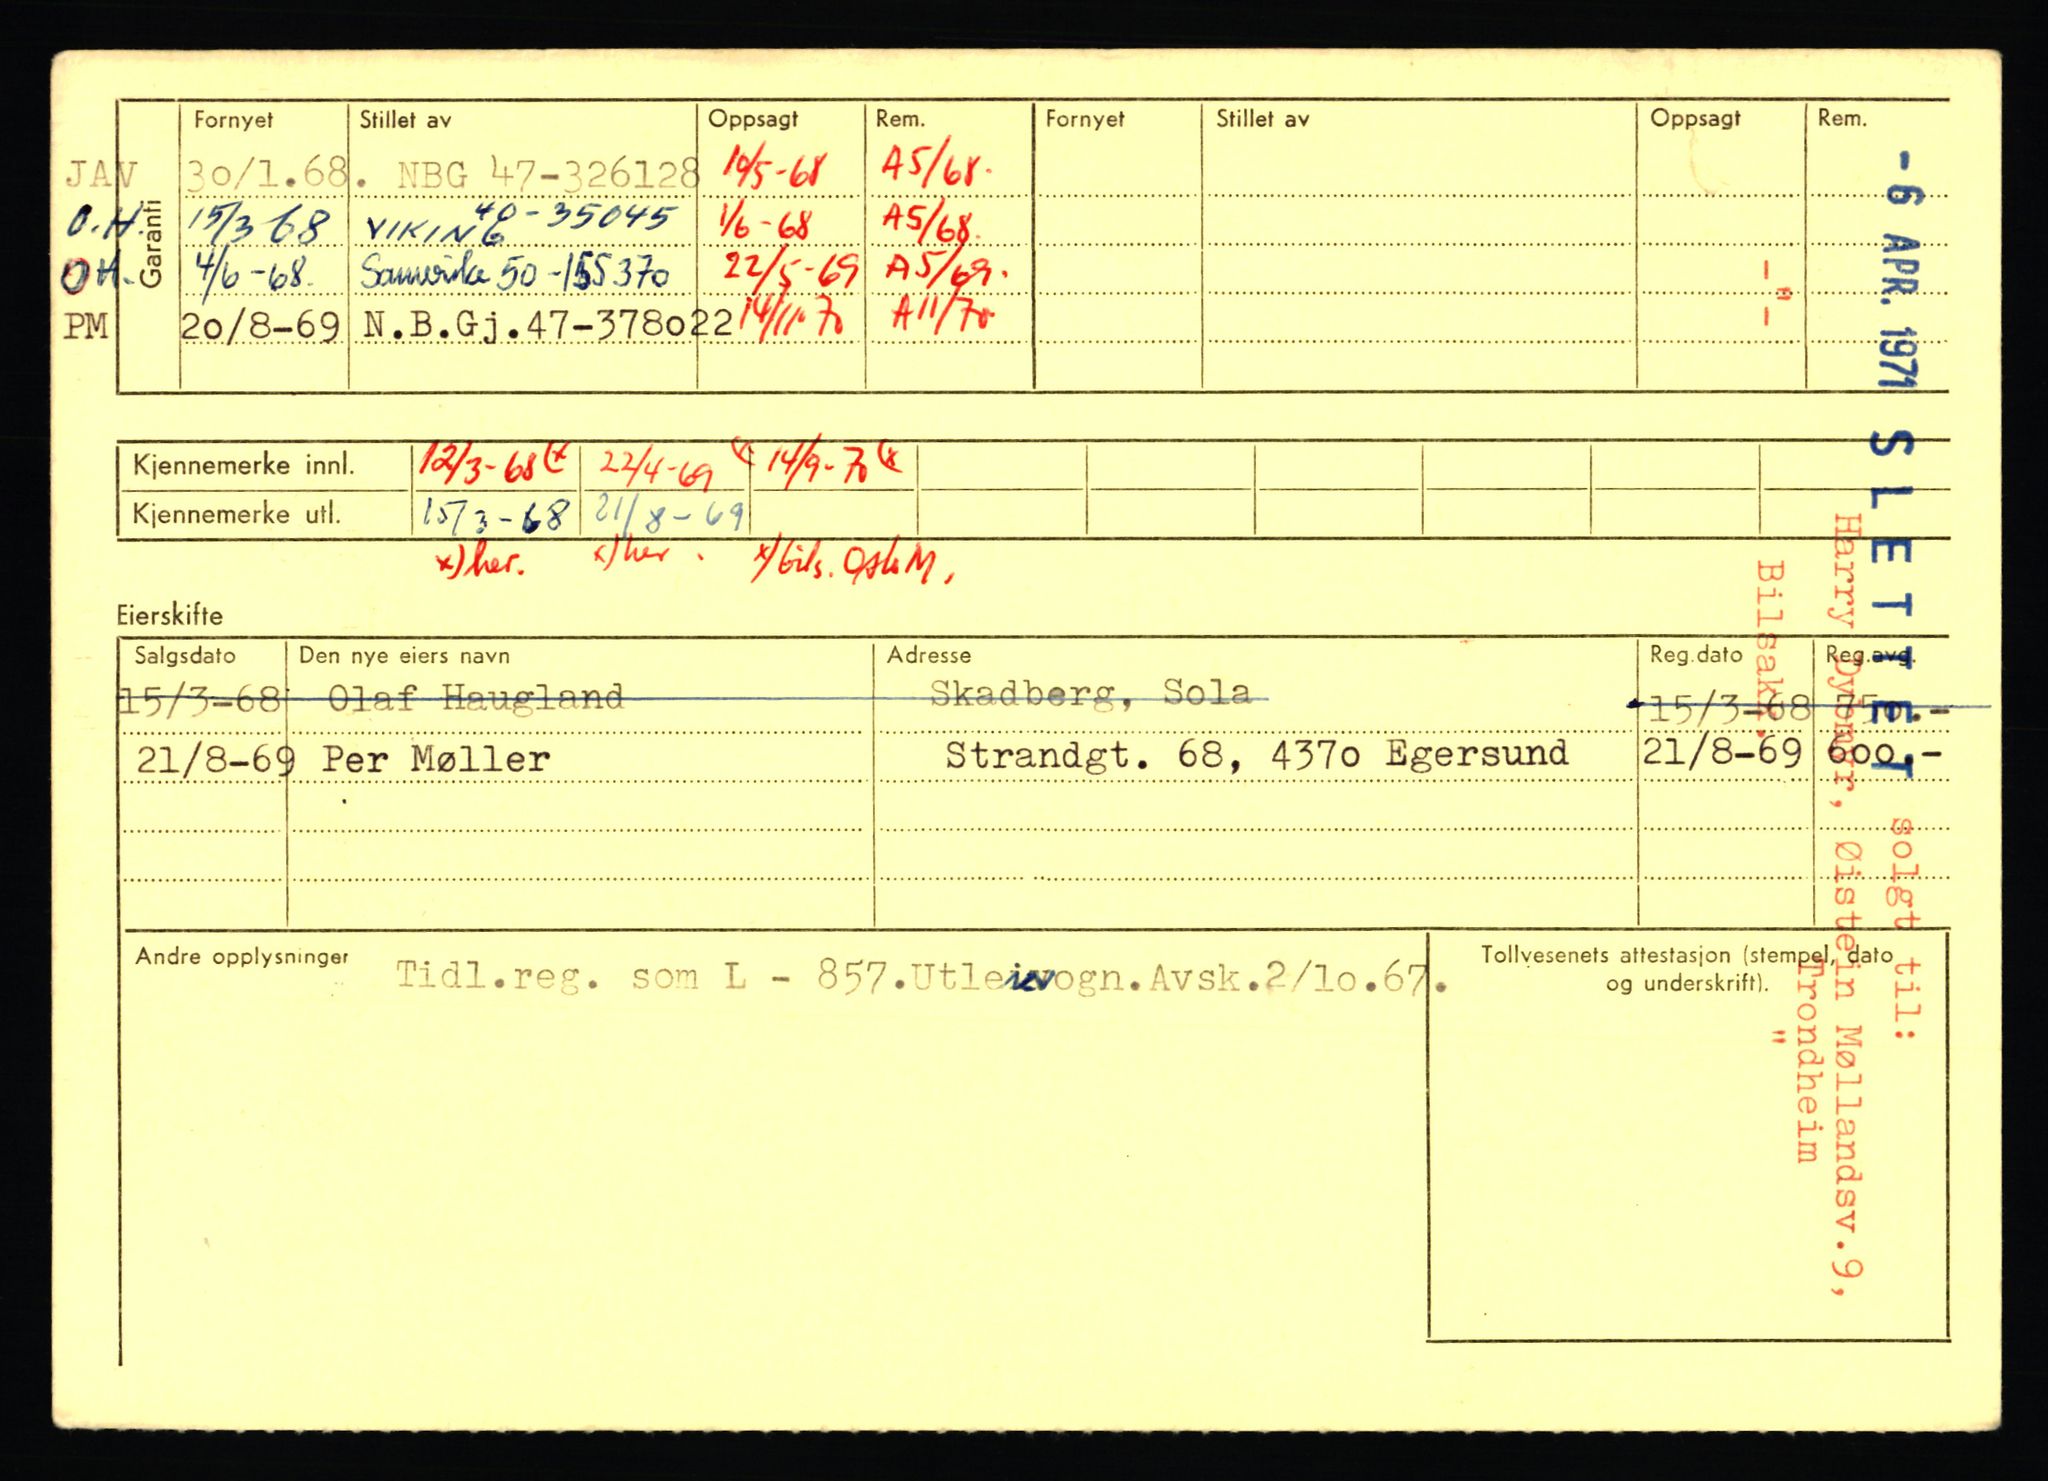 Garanti
Fornyet Stillet av Oppsagt Rem. Fornyet Stillet av Oppsagt Rem.
JAV 30/1.68. NBG 47-326128 10/5-68 A5/68.
O.H. 15/3 68 VIKING 40-35045 1/6-68 A5/68.
OH. 4/6-68. Samvirke 50-155370 22/5-69 A5/69.
PM 20/8-69 N.B.Gj.47-378022 14/11-70 A11/70
Kjennemerke innl. 12/3-68 (x 22/4-69 (x 14/9-70 (x
Kjennemerke utl. 15/3-68 21/8-69
x) her. x) her. x) bils.
Eierskifte
Salgsdato Den nye eiers navn Adresse Reg.dato Reg.avg.
15/3-68 Olaf Haugland Skadberg, Sola 15/3-68 750.-
21/8-69 Per Møller Strandgt. 68, 4370 Egersund 21/8-69 600.-
Andre opplysninger
Tidl.reg. som L - 857.Utleievogn.Avsk.2/10.67.
Tollvesenets attestasjon (stempel, dato
og underskrift).
- 6 APR. 1971 SLETTET solgt til:
Harry Øistein Møllandsv.9,
Trondheim
-"- Bilsakk. "